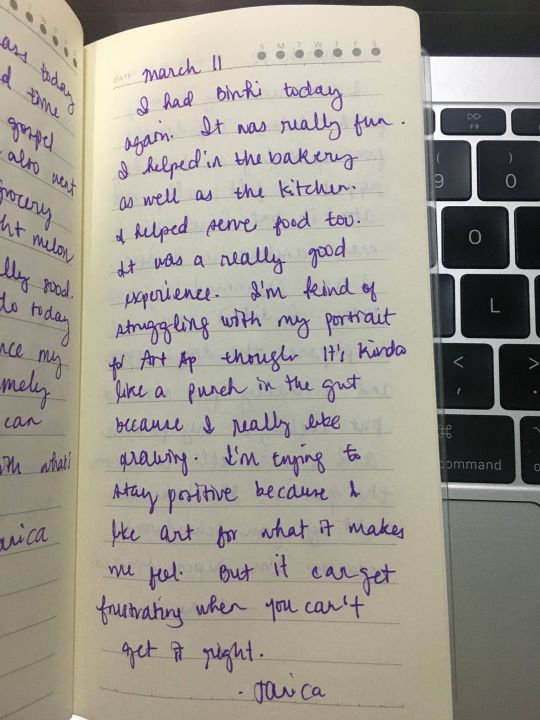 ass today
d time
gospel
also went
grocery
ht melon
lly good.
do today
nce my
mely
can
with what's
arica
S M T W T F S
DATE March 11
I had Binhi today
again. It was really fun.
I helped in the bakery
as well as the kitchen.
I helped serve food too.
It was a really good
experience. I'm kind of
struggling with my portrait
for Art Ap though. It's kinda
like a punch in the gut
because I really like
drawing. I'm trying to
stay positive because I
like art for what it makes
me feel. But it can get
frustrating when you can't
get it right.
- Jarica
F9
( ) 
9 0
O
L
< >
, .
⌘
command